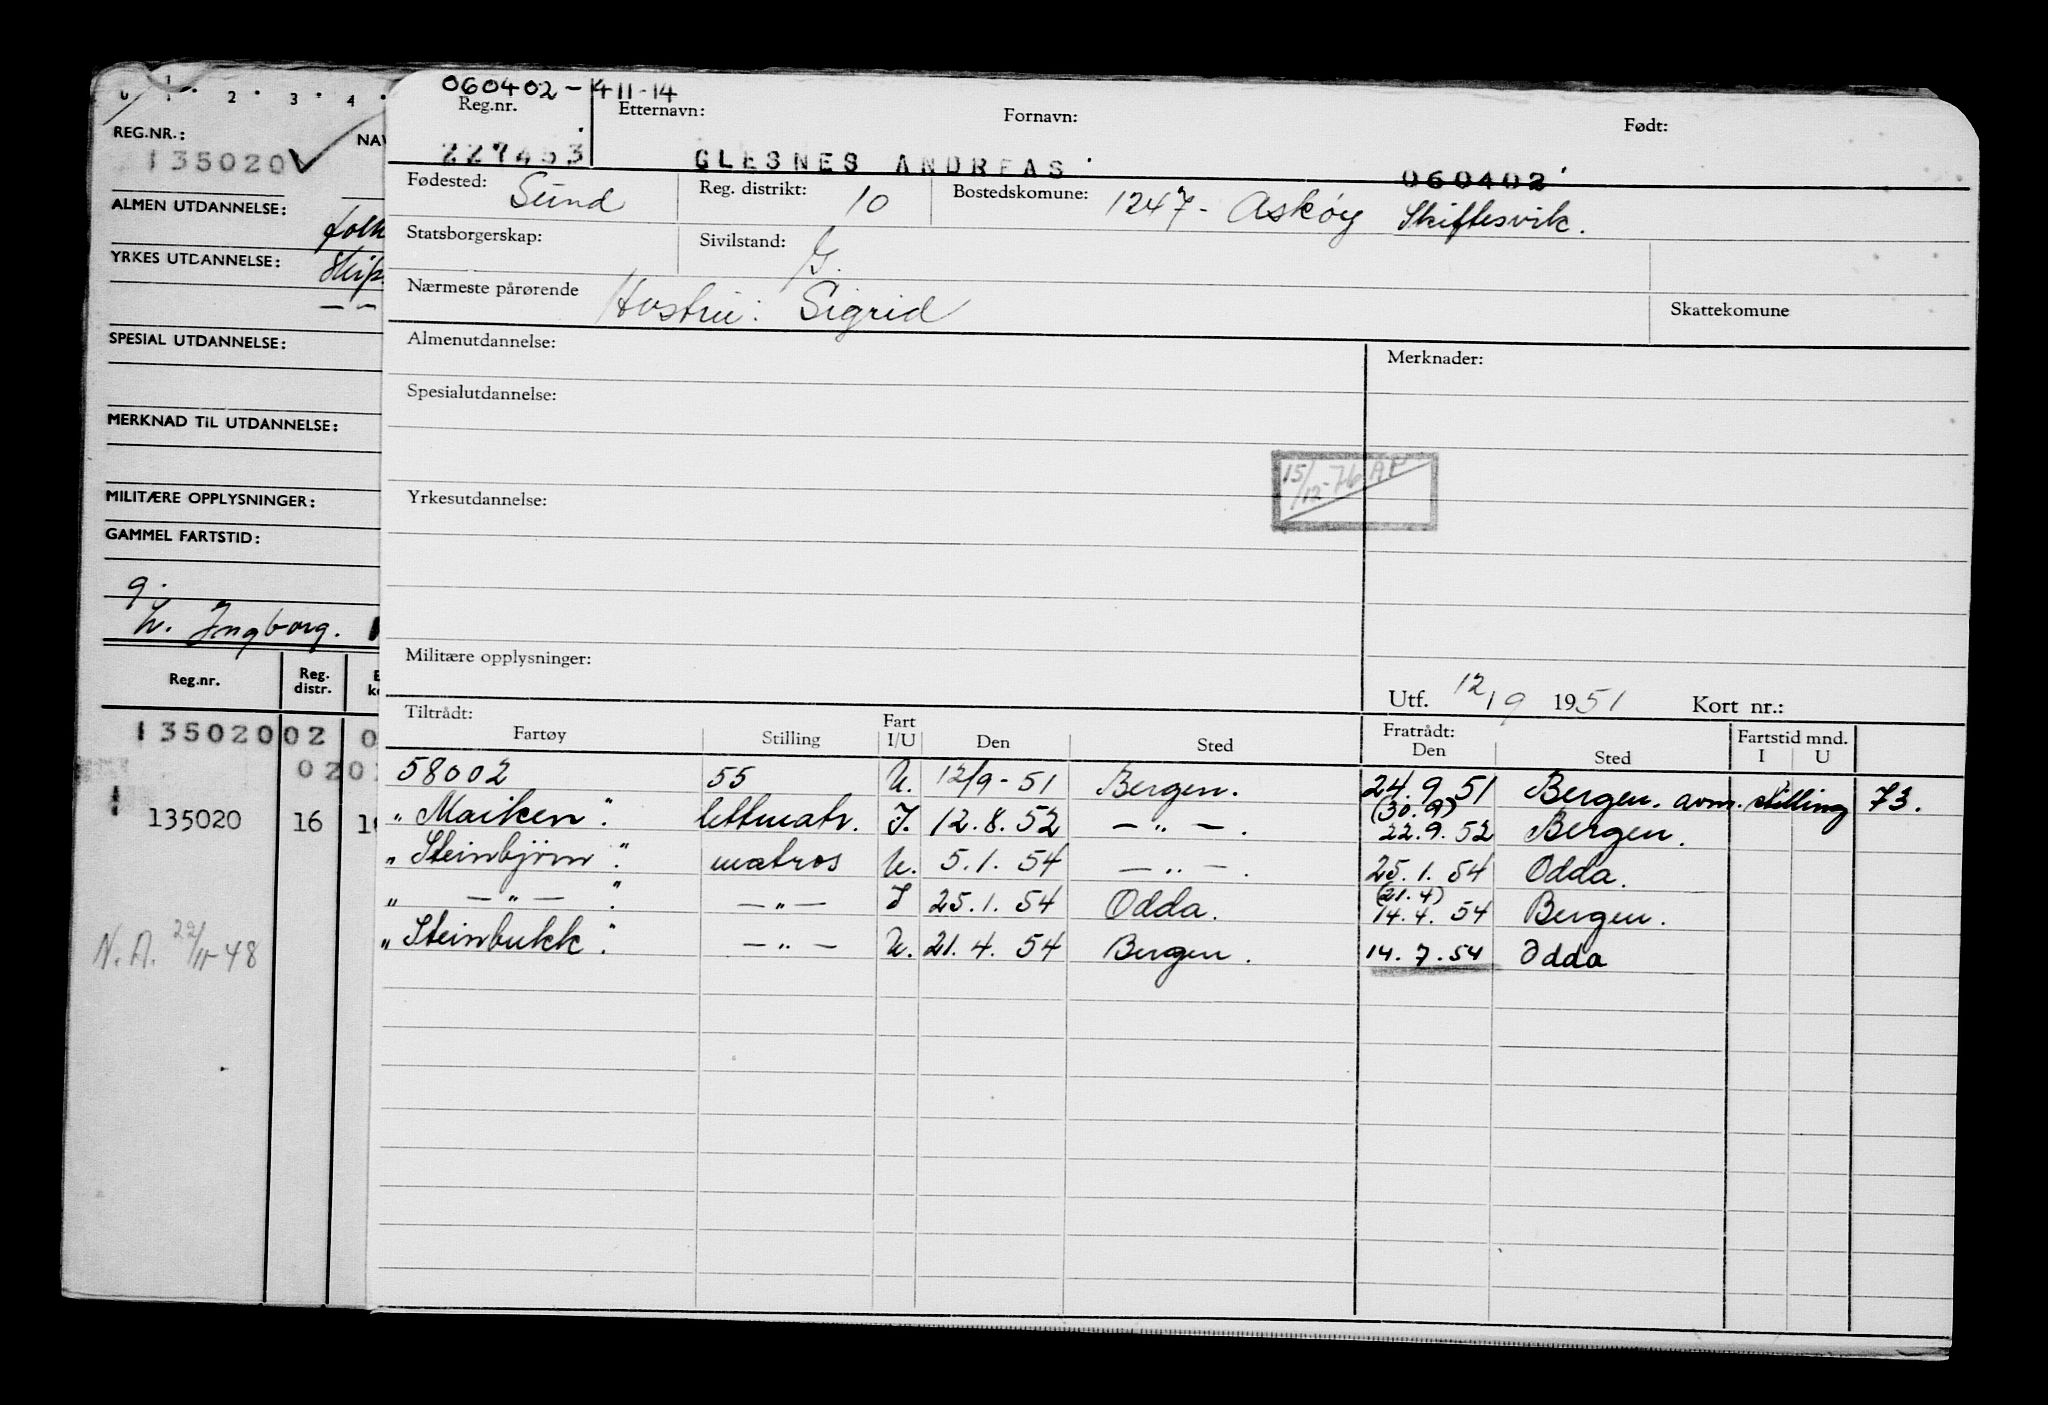 0 1 2 3 4
REG.NR.: NAV
135020
ALMEN UTDANNELSE: folk
YRKES UTDANNELSE: Skip
— " —
SPESIAL UTDANNELSE:
MERKNAD TIL UTDANNELSE:
MILITÆRE OPPLYSNINGER:
GAMMEL FARTSTID:
g.
h. Ingborg.
Reg.nr. Reg. distr.
135020 02 0
02 0
135020 16
N.A. 22/11-48
060402-411-14
Reg.nr. Etternavn: Fornavn: Født:
227453 GLESNES ANDREAS 060402
Fødested: Sund Reg. distrikt: 10 Bostedskomune: 1247- Askøy Skiftesvik.
Statsborgerskap: Sivilstand: G.
Nærmeste pårørende Hustru: Sigrid Skattekomune
Almenutdannelse: Merknader:
Spesialutdannelse:
15/12-76 AP
Yrkesutdannelse:
Militære opplysninger:
Utf. 12/9 1951 Kort nr.:
Tiltrådt: Fratrådt: Fartstid mnd.
Fartøy Stilling Fart I/U Den Sted Den Sted I U
58002 55 U. 12/9-51 Bergen. 24.9.51 Bergen. anm. stilling 73.
"Maiken". lettmatr. I. 12.8.52 — " —. (30.9) 22.9.52 Bergen.
"Steinbjørn". matros U. 5.1.54 — " —. 25.1.54 Odda.
" — " — ". — " — I 25.1.54 Odda. (21.4) 14.4.54 Bergen.
"Steinbukk". — " — U. 21.4.54 Bergen. 14.7.54 Odda